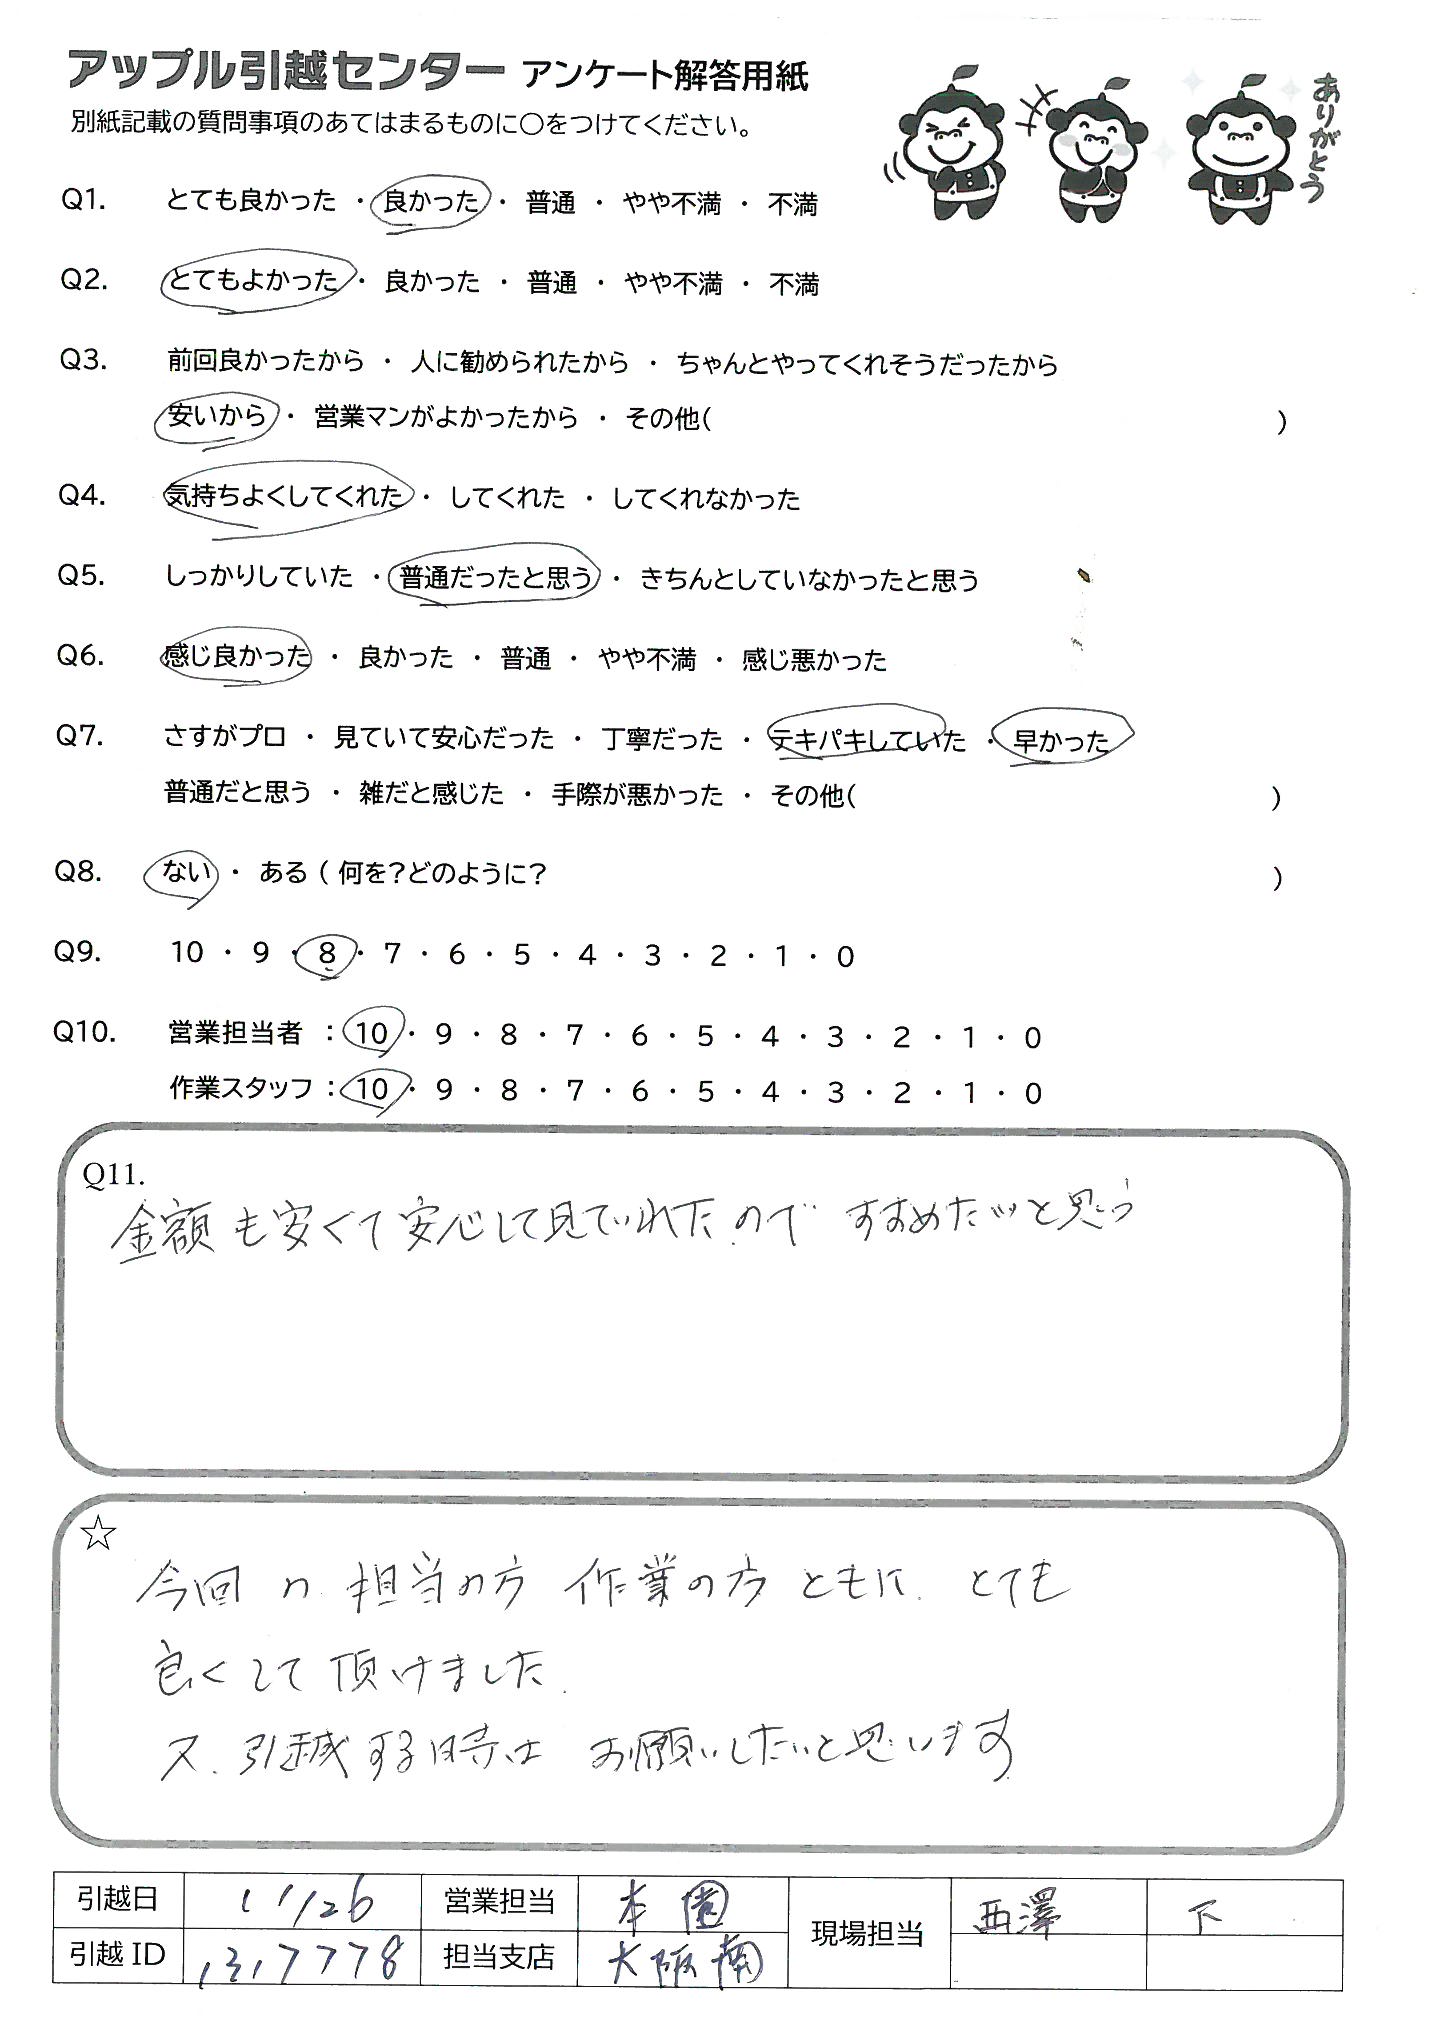 アップル引越センター アンケート解答用紙
別紙記載の質問事項のあてはまるものに〇をつけてください。
ありがとう
Q1. とても良かった ・ 良かった ・ 普通 ・ やや不満 ・ 不満
Q2. とてもよかった ・ 良かった ・ 普通 ・ やや不満 ・ 不満
Q3. 前回良かったから ・ 人に勧められたから ・ ちゃんとやってくれそうだったから
安いから ・ 営業マンがよかったから ・ その他( )
Q4. 気持ちよくしてくれた ・ してくれた ・ してくれなかった
Q5. しっかりしていた ・ 普通だったと思う ・ きちんとしていなかったと思う
Q6. 感じ良かった ・ 良かった ・ 普通 ・ やや不満 ・ 感じ悪かった
Q7. さすがプロ ・ 見ていて安心だった ・ 丁寧だった ・ テキパキしていた ・ 早かった
普通だと思う ・ 雑だと感じた ・ 手際が悪かった ・ その他( )
Q8. ない ・ ある ( 何を?どのように? )
Q9. 10 ・ 9 ・ 8 ・ 7 ・ 6 ・ 5 ・ 4 ・ 3 ・ 2 ・ 1 ・ 0
Q10. 営業担当者 : 10 ・ 9 ・ 8 ・ 7 ・ 6 ・ 5 ・ 4 ・ 3 ・ 2 ・ 1 ・ 0
作業スタッフ : 10 ・ 9 ・ 8 ・ 7 ・ 6 ・ 5 ・ 4 ・ 3 ・ 2 ・ 1 ・ 0
Q11.
金額も安くて安心して見ていれたので すすめたいと思う
☆
今回の担当の方 作業の方ともに とても
良くして頂けました.
又、引越する時は お願いしたいと思います
引越日 11/26 営業担当 本園 現場担当 西澤 下
引越ID 1317778 担当支店 大阪南